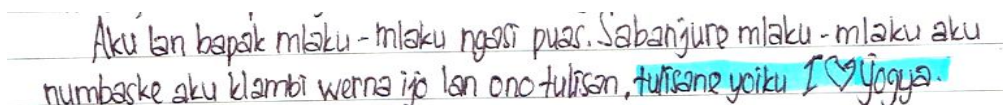 Aku lan bapak mlaku-mlaku ngasi puas. Sabanjure mlaku-mlaku aku
numbaske aku klambi werna ijo lan ono tulisan, tulisane yoiku I ♡ Yogya.